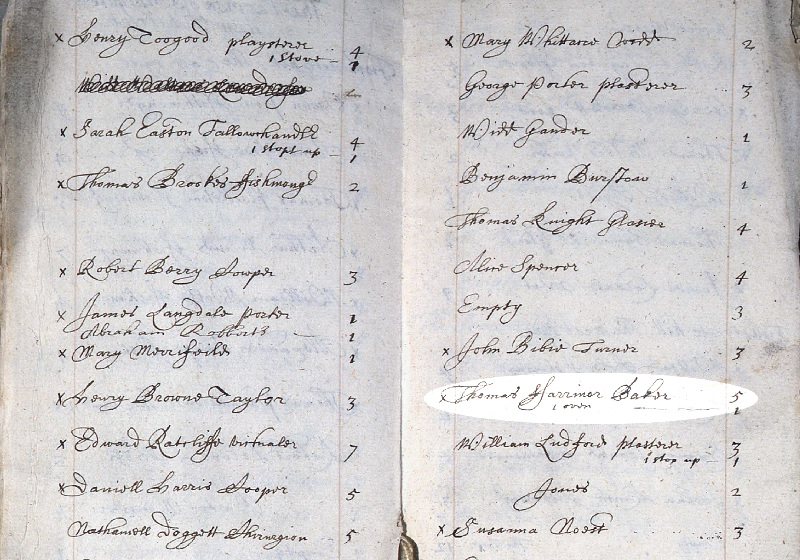 x Henry Toogood playsterer 4
1 Stove 1
x Sarah Easton Tallowchandlr 4
1 stopt up 1
x Thomas Brookes ffishmongr 2
x Robert Berry Cowper 3
x James Langdale Porter 1
Abraham Roberts 1
x Mary Merrifeild 1
x Henry Browne Taylor 3
x Edward Ratcliffe victualer 7
x Daniell Harris Cooper 5
Nathaniell Doggett Chirurgion 5
x Mary Whittacre 2
George Porter plasterer 3
Will Gander 1
Benjamin Burstow 1
Thomas Knight Glasier 4
Alice Spencer 4
Empty 3
x John Bibie Turner 3
x Thomas ffarrinor Baker 5
1 oven 1
William Ludford plasterer 3
1 stop up 1
Jones 2
x Susanna Noest 3